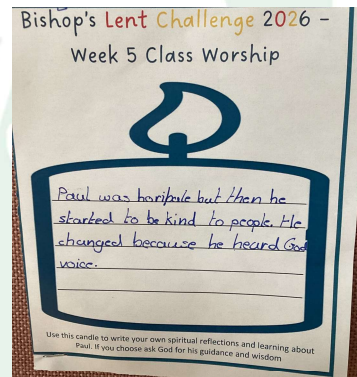 Bishop's Lent Challenge 2026 –
Week 5 Class Worship
Paul was horibule but then he
started to be kind to people. He
changed because he heard God
voice.
Use this candle to write your own spiritual reflections and learning about
Paul. If you choose ask God for his guidance and wisdom